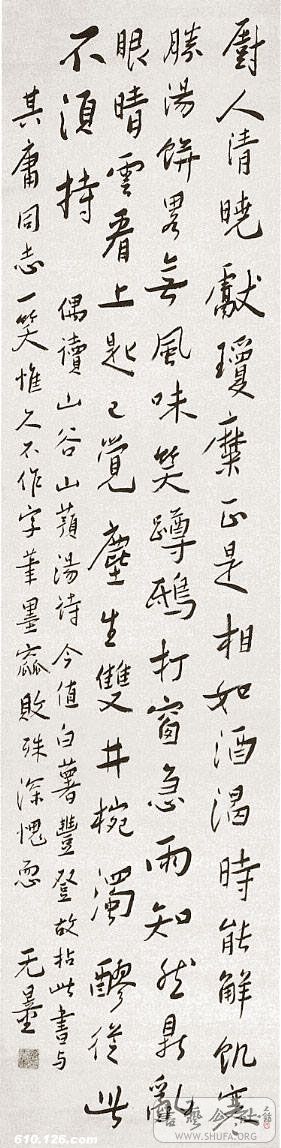 廚人清曉獻瓊糜正是相如酒渴時能解飢寒
勝湯餅畧無風味笑蹲鴟打窗急雨知然鼎亂
眼晴雲看上匙已覺塵生雙井椀濁醪從此
不須持
偶讀山谷山蕷湯詩今值白薯豐登故拈此書与
其庸同志一笑惟久不作字筆墨窳敗殊深愧恧
无量
610.126.com
WWW.SHUFA.ORG